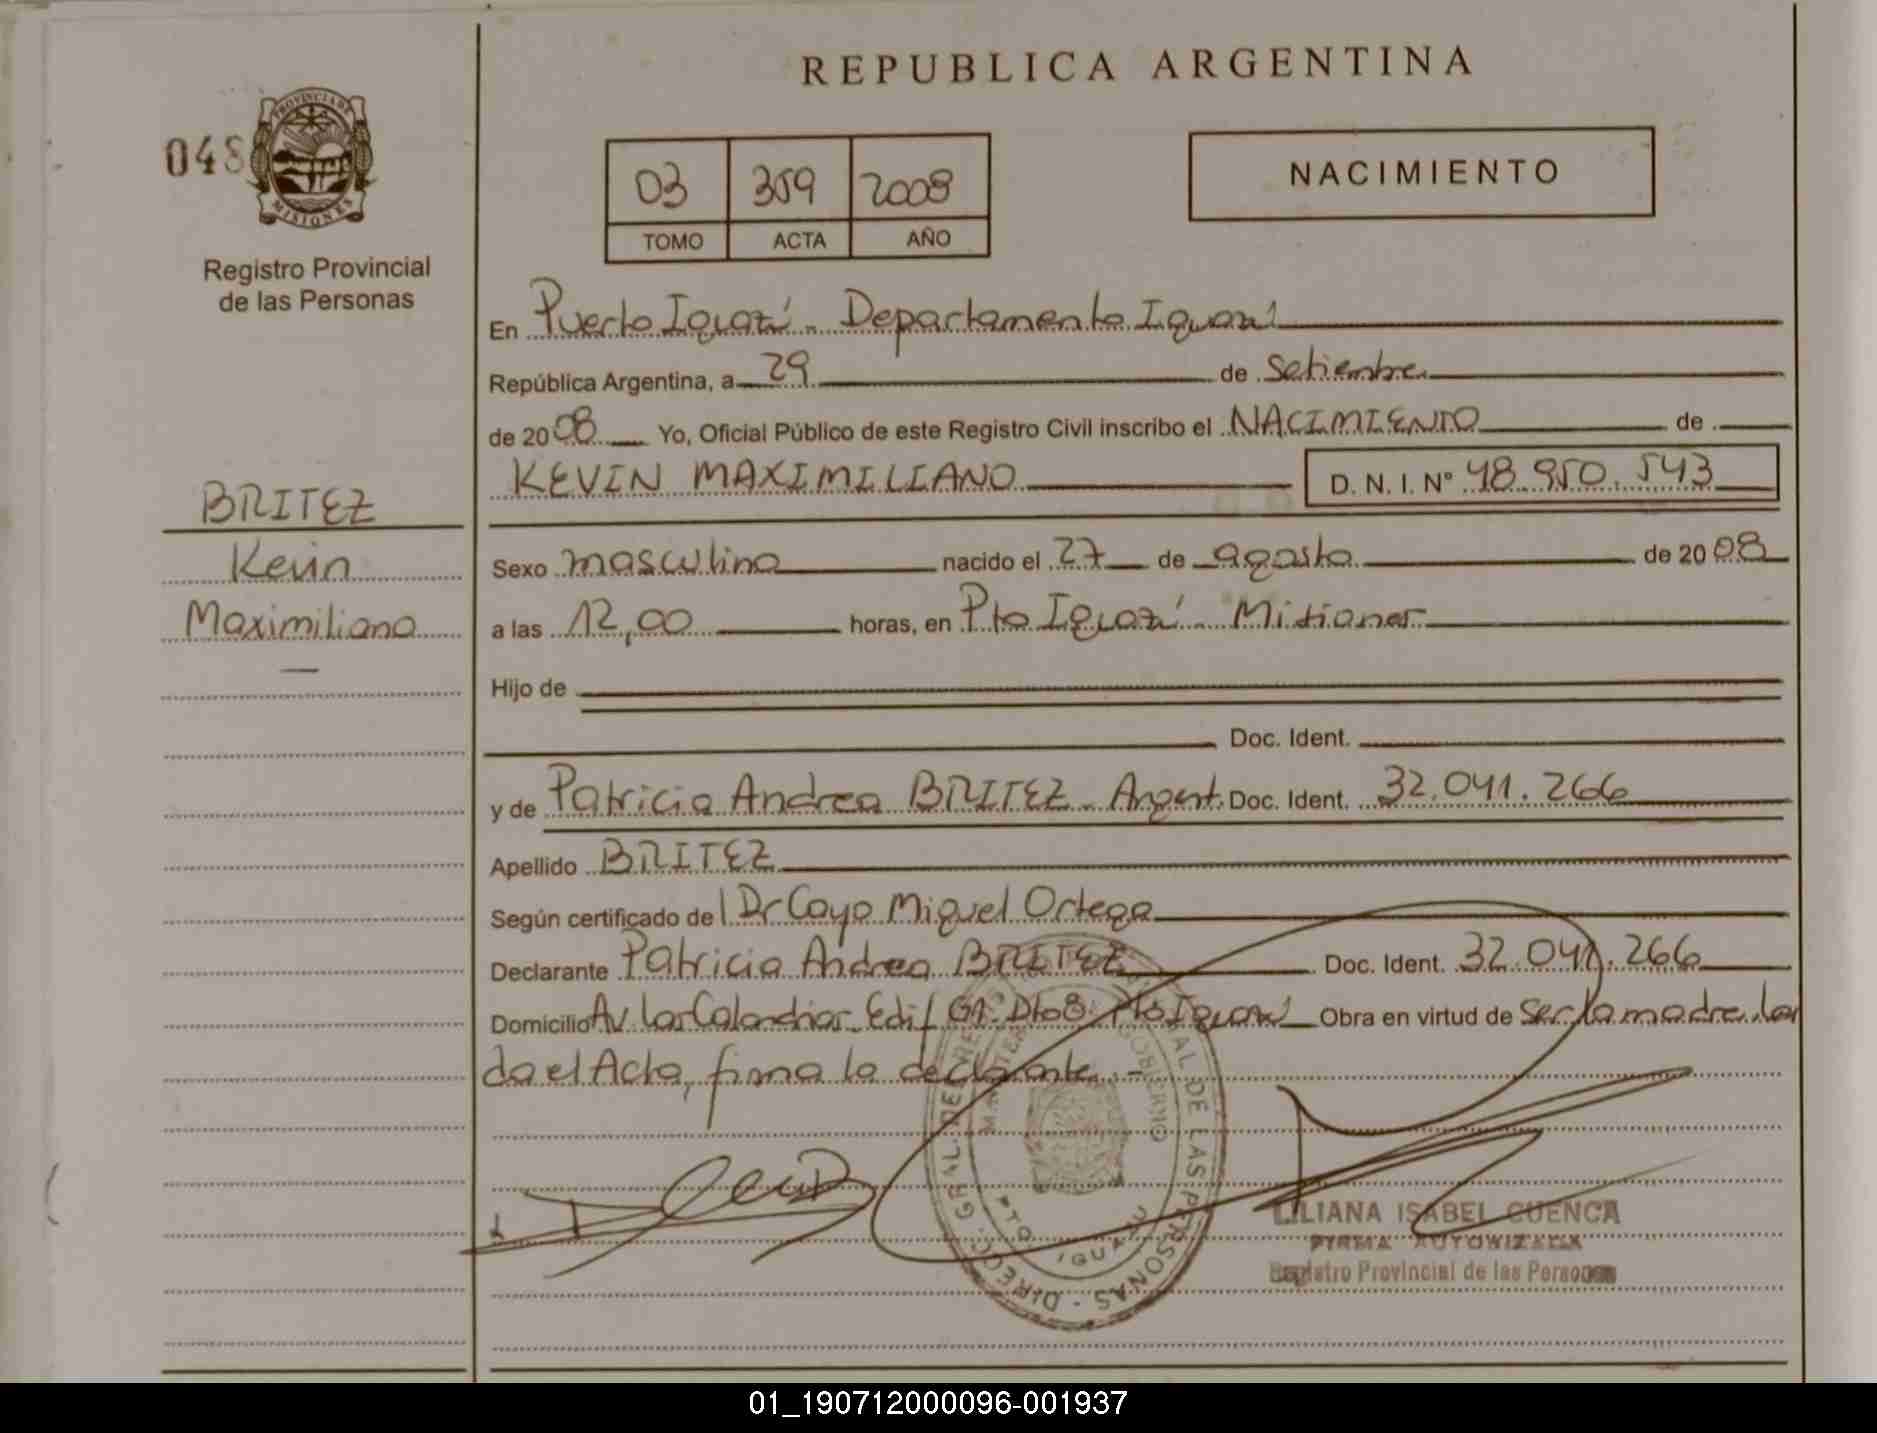 REPUBLICA ARGENTINA
048
PROVINCIA DE
MISIONES
Registro Provincial
de las Personas
03 359 2008
TOMO ACTA AÑO
NACIMIENTO
En Puerto Iguazú - Departamento Iguazú
República Argentina, a 29 de Setiembre
de 2008 Yo, Oficial Público de este Registro Civil inscribo el NACIMIENTO de
KEVIN MAXIMILIANO D. N. I. N° 48.950.543
BRITEZ
Kevin
Maximiliano
Sexo masculino nacido el 27 de agosto de 2008
a las 12,00 horas, en Pto Iguazú - Misiones
Hijo de
Doc. Ident.
y de Patricia Andrea BRITEZ - Argent. Doc. Ident. 32.041.266
Apellido BRITEZ
Según certificado del Dr Cayo Miguel Ortega
Declarante Patricia Andrea BRITEZ Doc. Ident. 32.041.266
Domicilio Av Las Calandrias Edif G1. Dto 8 Pto Iguazú Obra en virtud de ser la madre, leí
da el Acta, firma la declarante. -
DIRECC. GRAL. DE REG. PROVINCIAL DE LAS PERSONAS
GOBIERNO
PTO IGUAZU
LILIANA ISABEL CUENCA
FIRMA AUTORIZADA
Registro Provincial de las Personas
01_190712000096-001937